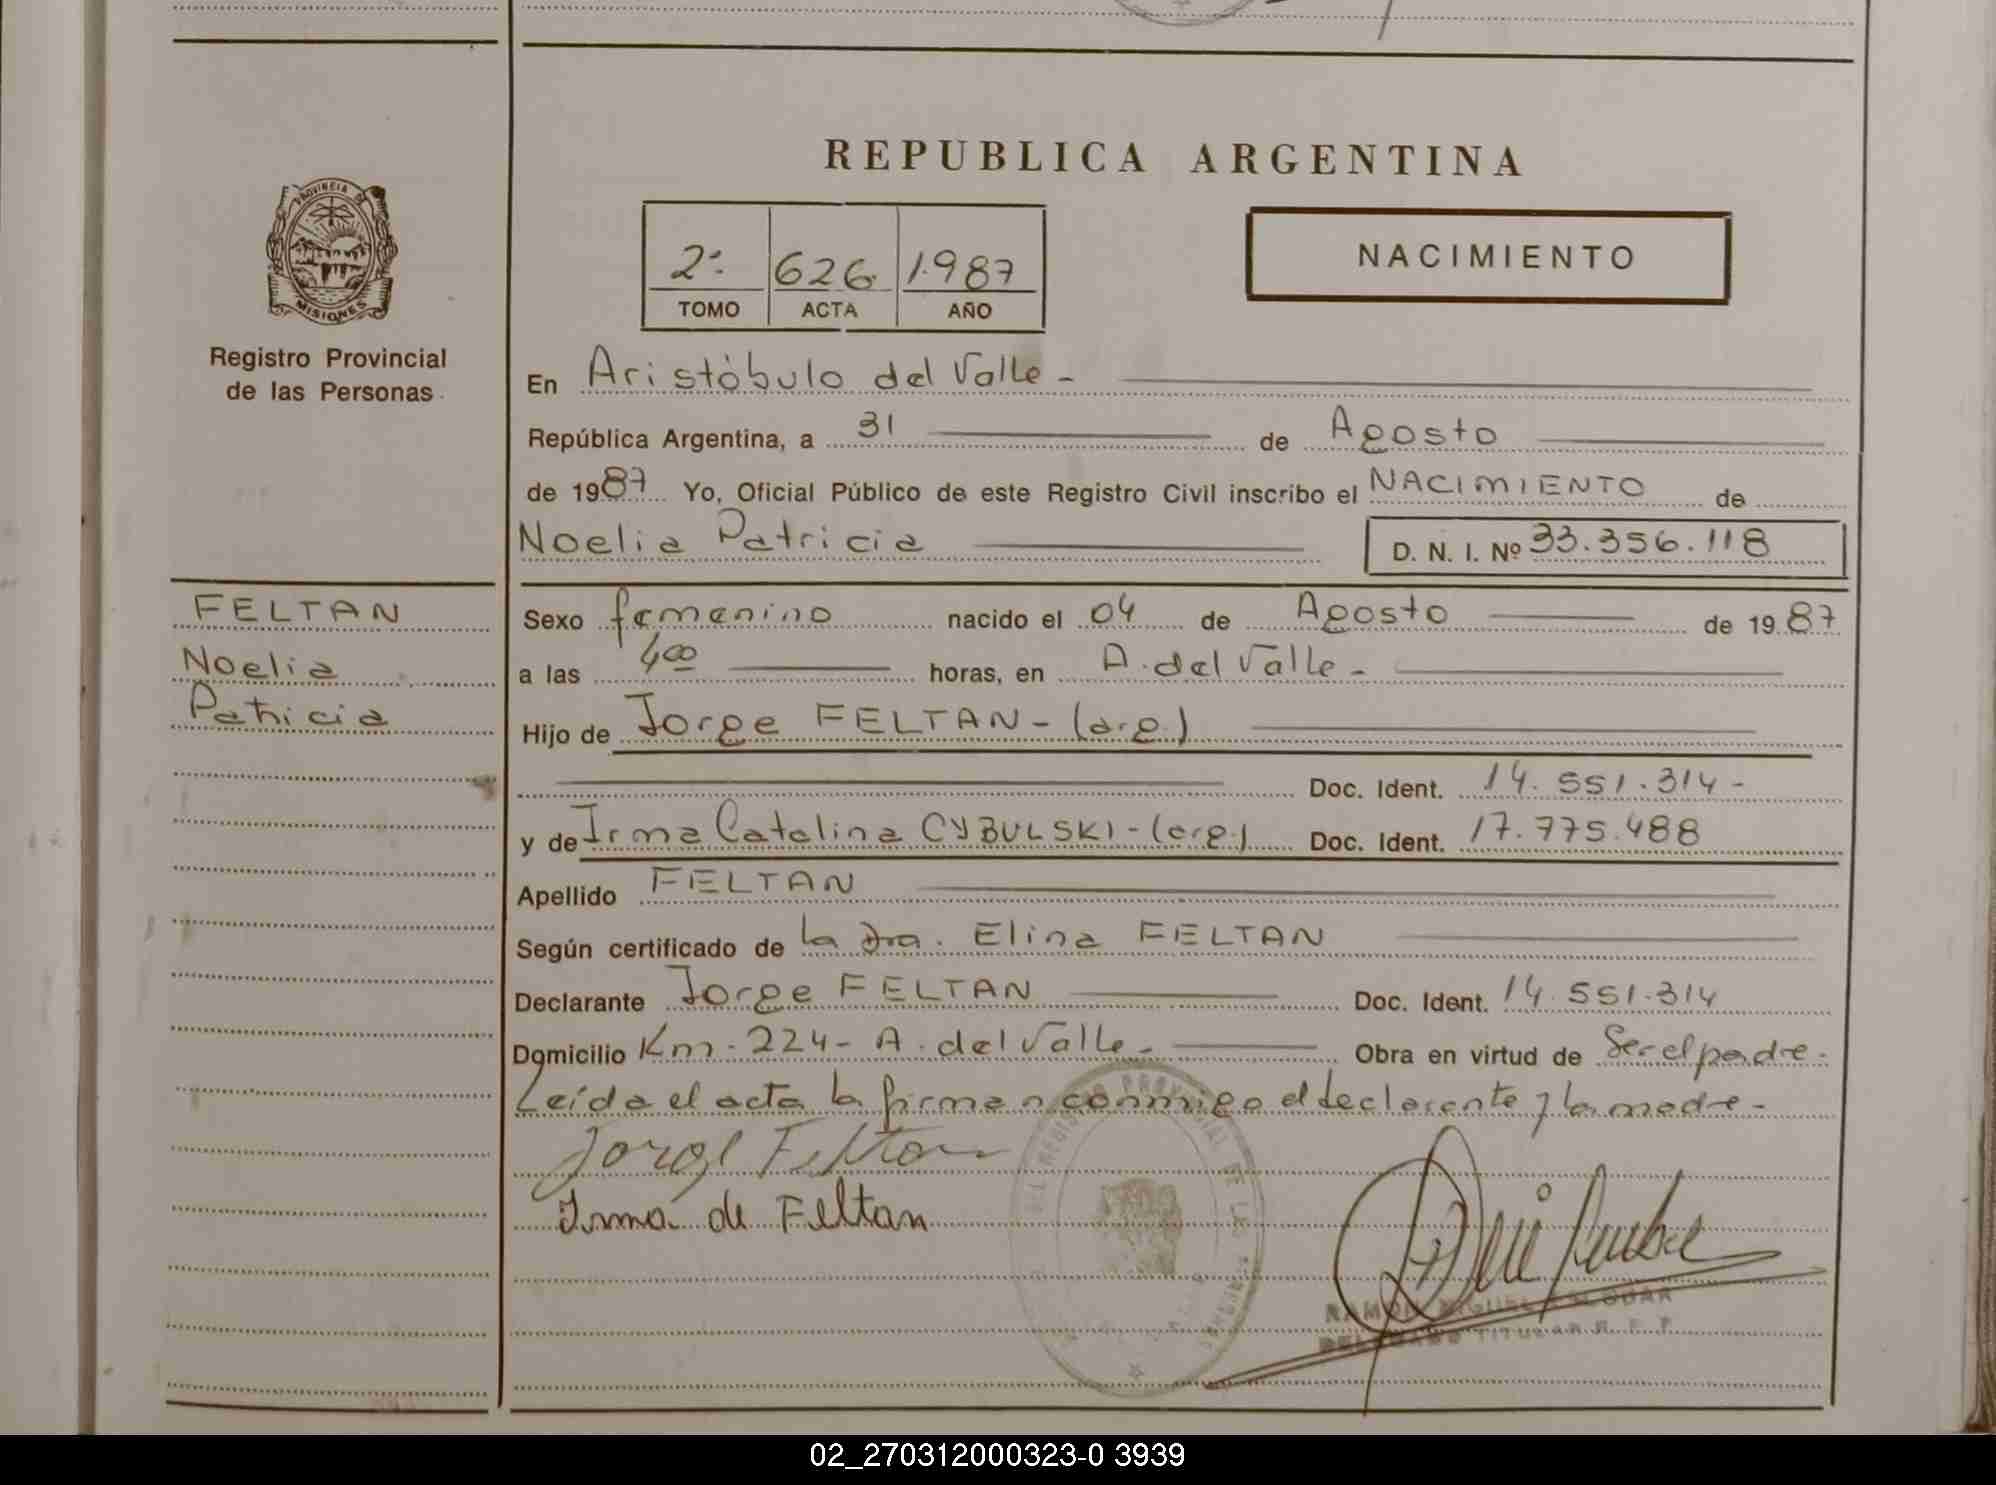 REPUBLICA ARGENTINA
PROVINCIA DE MISIONES
Registro Provincial
de las Personas
2º 626 1.987
TOMO ACTA AÑO
NACIMIENTO
En Aristóbulo del Valle -
República Argentina, a 31 de Agosto
de 1987 Yo, Oficial Público de este Registro Civil inscribo el NACIMIENTO de
Noelia Patricia D. N. I. Nº 33.356.118
FELTAN
Noelia
Patricia
Sexo femenino nacido el 04 de Agosto de 1987
a las 4 00 horas, en A. del Valle -
Hijo de Jorge FELTAN - (arg.)
Doc. Ident. 14.551.314 -
y de Irma Catalina CYBULSKI - (arg.) Doc. Ident. 17.775.488
Apellido FELTAN
Según certificado de la Dra. Elina FELTAN
Declarante Jorge FELTAN Doc. Ident. 14.551.314
Domicilio Km - 224 - A. del Valle - Obra en virtud de Ser el padre -
Leída el acta la firman conmigo el declarante y la madre -
Jorge Feltan
Irma de Feltan
RAMON MIGUEL
TITULAR R. P. P.
02_270312000323-0 3939